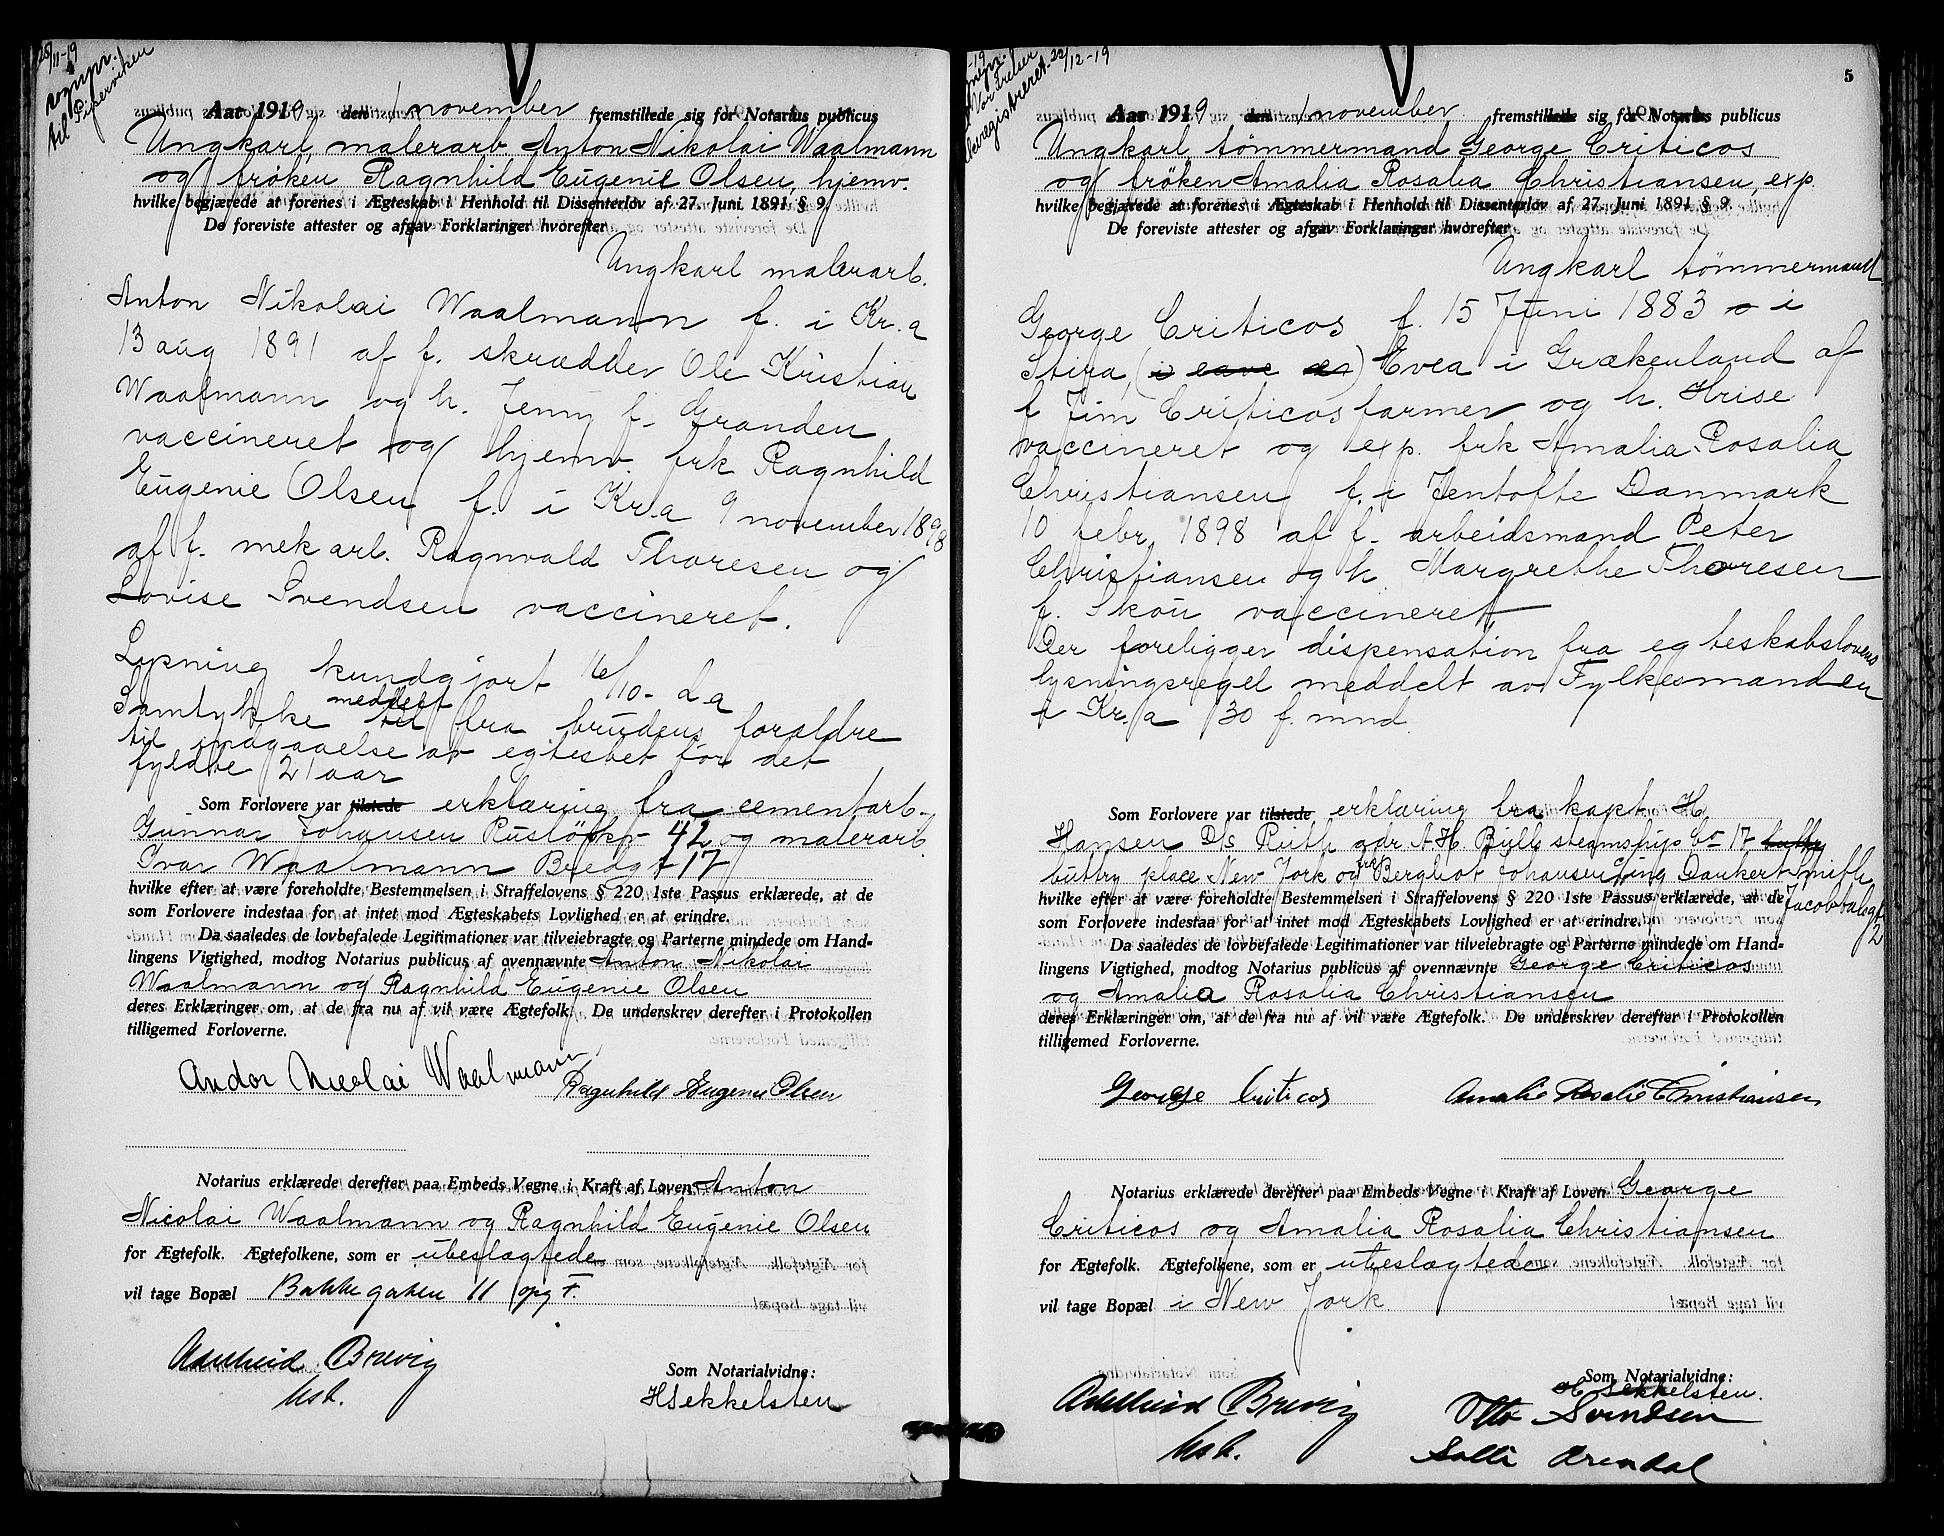 28/11-19
sognpr.
til Piperviken
Aar 1919 den 1 november fremstillede sig for Notarius publicus
Ungkarl, malerarb Anton Nikolai Waalmann
og frøken Ragnhild Eugenie Olsen, hjemv.
hvilke begjærede at forenes i Ægteskab i Henhold til Dissenterlov af 27. Juni 1891 § 9
De foreviste attester og afgav Forklaringer hvorefter
Ungkarl malerarb.
Anton Nikolai Waalmann f. i Kr.a
13 aug 1891 af f. skrædder Ole Kristian
Waalmann og h. Jenny f. Granden
vaccineret og hjemv. frk Ragnhild
Eugenie Olsen f. i Kr.a 9 november 1898
af f. mek arb. Ragnvald Thoresen og
Lovise Svendsen vaccineret.
Lysning kundgjort 16/10- d.a
Samtykke meddelt til fra brudens forældre
til indgaaelse av egteskab før det
fyldte 21 aar
Som Forlovere var tilstede erklæring fra cementarb.
Gunnar Johansen Rusløkv- 42 og malerarb.
Ivar Waalmann Bredgt 17
hvilke efter at være foreholdte Bestemmelsen i Straffelovens § 220 1ste Passus erklærede, at de
som Forlovere indestaa for at intet mod Ægteskabets Lovlighed er at erindre.
Da saaledes de lovbefalede Legitimationer var tilveiebragte og Parterne mindede om Hand-
lingens Vigtighed, modtog Notarius publicus af ovennævnte Anton Nikolai
Waalmann og Ragnhild Eugenie Olsen
deres Erklæringer om, at de fra nu af vil være Ægtefolk. De underskrev derefter i Protokollen
tilligemed Forloverne.
Andor Nicolai Waalmann
Ragnhild Eugenie Olsen
Notarius erklærede derefter paa Embeds Vegne i Kraft af Loven Anton
Nicolai Waalmann og Ragnhild Eugenie Olsen
for Ægtefolk. Ægtefolkene, som er ubeslægtede
vil tage Bopæl Bakkegaten 11 opg F.
Adelheid Brevig
Som Notarialvidne:
HSekkelsten
5
22/12-19
Vor Frelser
Aar 1919 den 1 november fremstillede sig for Notarius publicus
Ungkarl tømmermand George Criticos
og frøken Amalia Rosalia Christiansen, exp.
hvilke begjærede at forenes i Ægteskab i Henhold til Dissenterlov af 27. Juni 1891 § 9
De foreviste attester og afgav Forklaringer hvorefter
Ungkarl tømmermand
George Criticos f. 15 Juni 1883 i
Stira, (i eave) Evea i Grækenland af
f Jim Criticos farmer og h. Hrise
vaccineret og exp. frk Amalia Rosalia
Christiansen f. i Jentofte Danmark
10 febr 1898 af f. arbeidsmand Peter
Christiansen og h. Margrethe Thoresen
f. Skou vaccineret
Der foreligger dispensation fra egteskabslovens
lysningsregel meddelt av Fylkesmanden
i Kr.a 30 f. mnd.
Som Forlovere var tilstede erklæring fra kapt. H.
Hansen D/s Ruth adr A H Bull steamship Co 17 battry
battry place New Jork og fra Bergliot Johansen Dankert Smith
hvilke efter at være foreholdte Bestemmelsen i Straffelovens § 220 1ste Passus erklærede, at de
Jacob Aalsgt 2
som Forlovere indestaa for at intet mod Ægteskabets Lovlighed er at erindre.
Da saaledes de lovbefalede Legitimationer var tilveiebragte og Parterne mindede om Hand-
lingens Vigtighed, modtog Notarius publicus af ovennævnte George Criticos
og Amalia Rosalia Christiansen
deres Erklæringer om, at de fra nu af vil være Ægtefolk. De underskrev derefter i Protokollen
tilligemed Forloverne.
George Criticos
Amalie Rosalie Christiansen
Notarius erklærede derefter paa Embeds Vegne i Kraft af Loven George
Criticos og Amalia Rosalia Christiansen
for Ægtefolk. Ægtefolkene, som er ubeslægtede
vil tage Bopæl i New Jork
Adelheid Brevig
Som Notarialvidne:
H Sekkelsten.
Otto Svendsen
Arendal